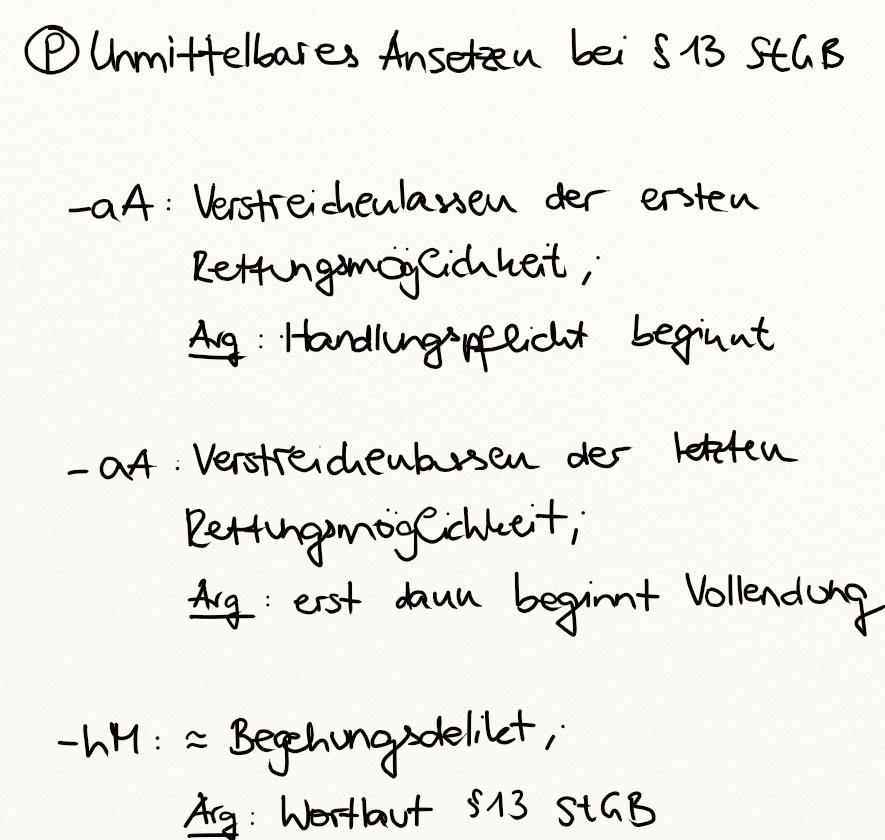 Ⓟ Unmittelbares Ansetzen bei § 13 StGB
- aA: Verstreichenlassen der ersten
Rettungsmöglichkeit;
Arg: Handlungspflicht beginnt
- aA: Verstreichenlassen der letzten
Rettungsmöglichkeit;
Arg: erst dann beginnt Vollendung
- hM: ≈ Begehungsdelikt;
Arg: Wortlaut § 13 StGB